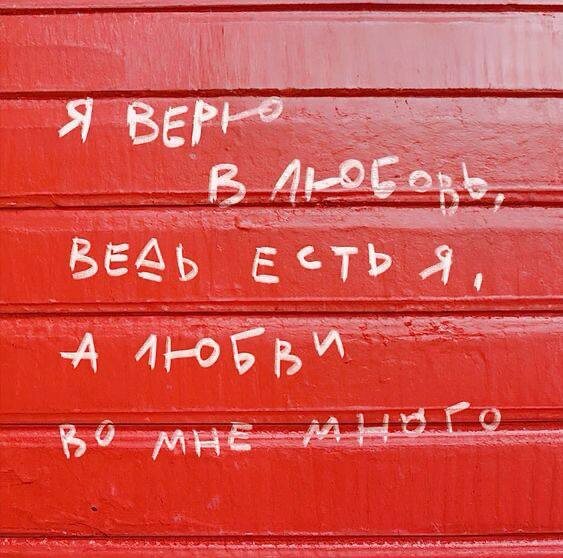 Я ВЕРЮ
В ЛЮБОВЬ,
ВЕДЬ ЕСТЬ Я,
А ЛЮБВИ
ВО МНЕ МНОГО